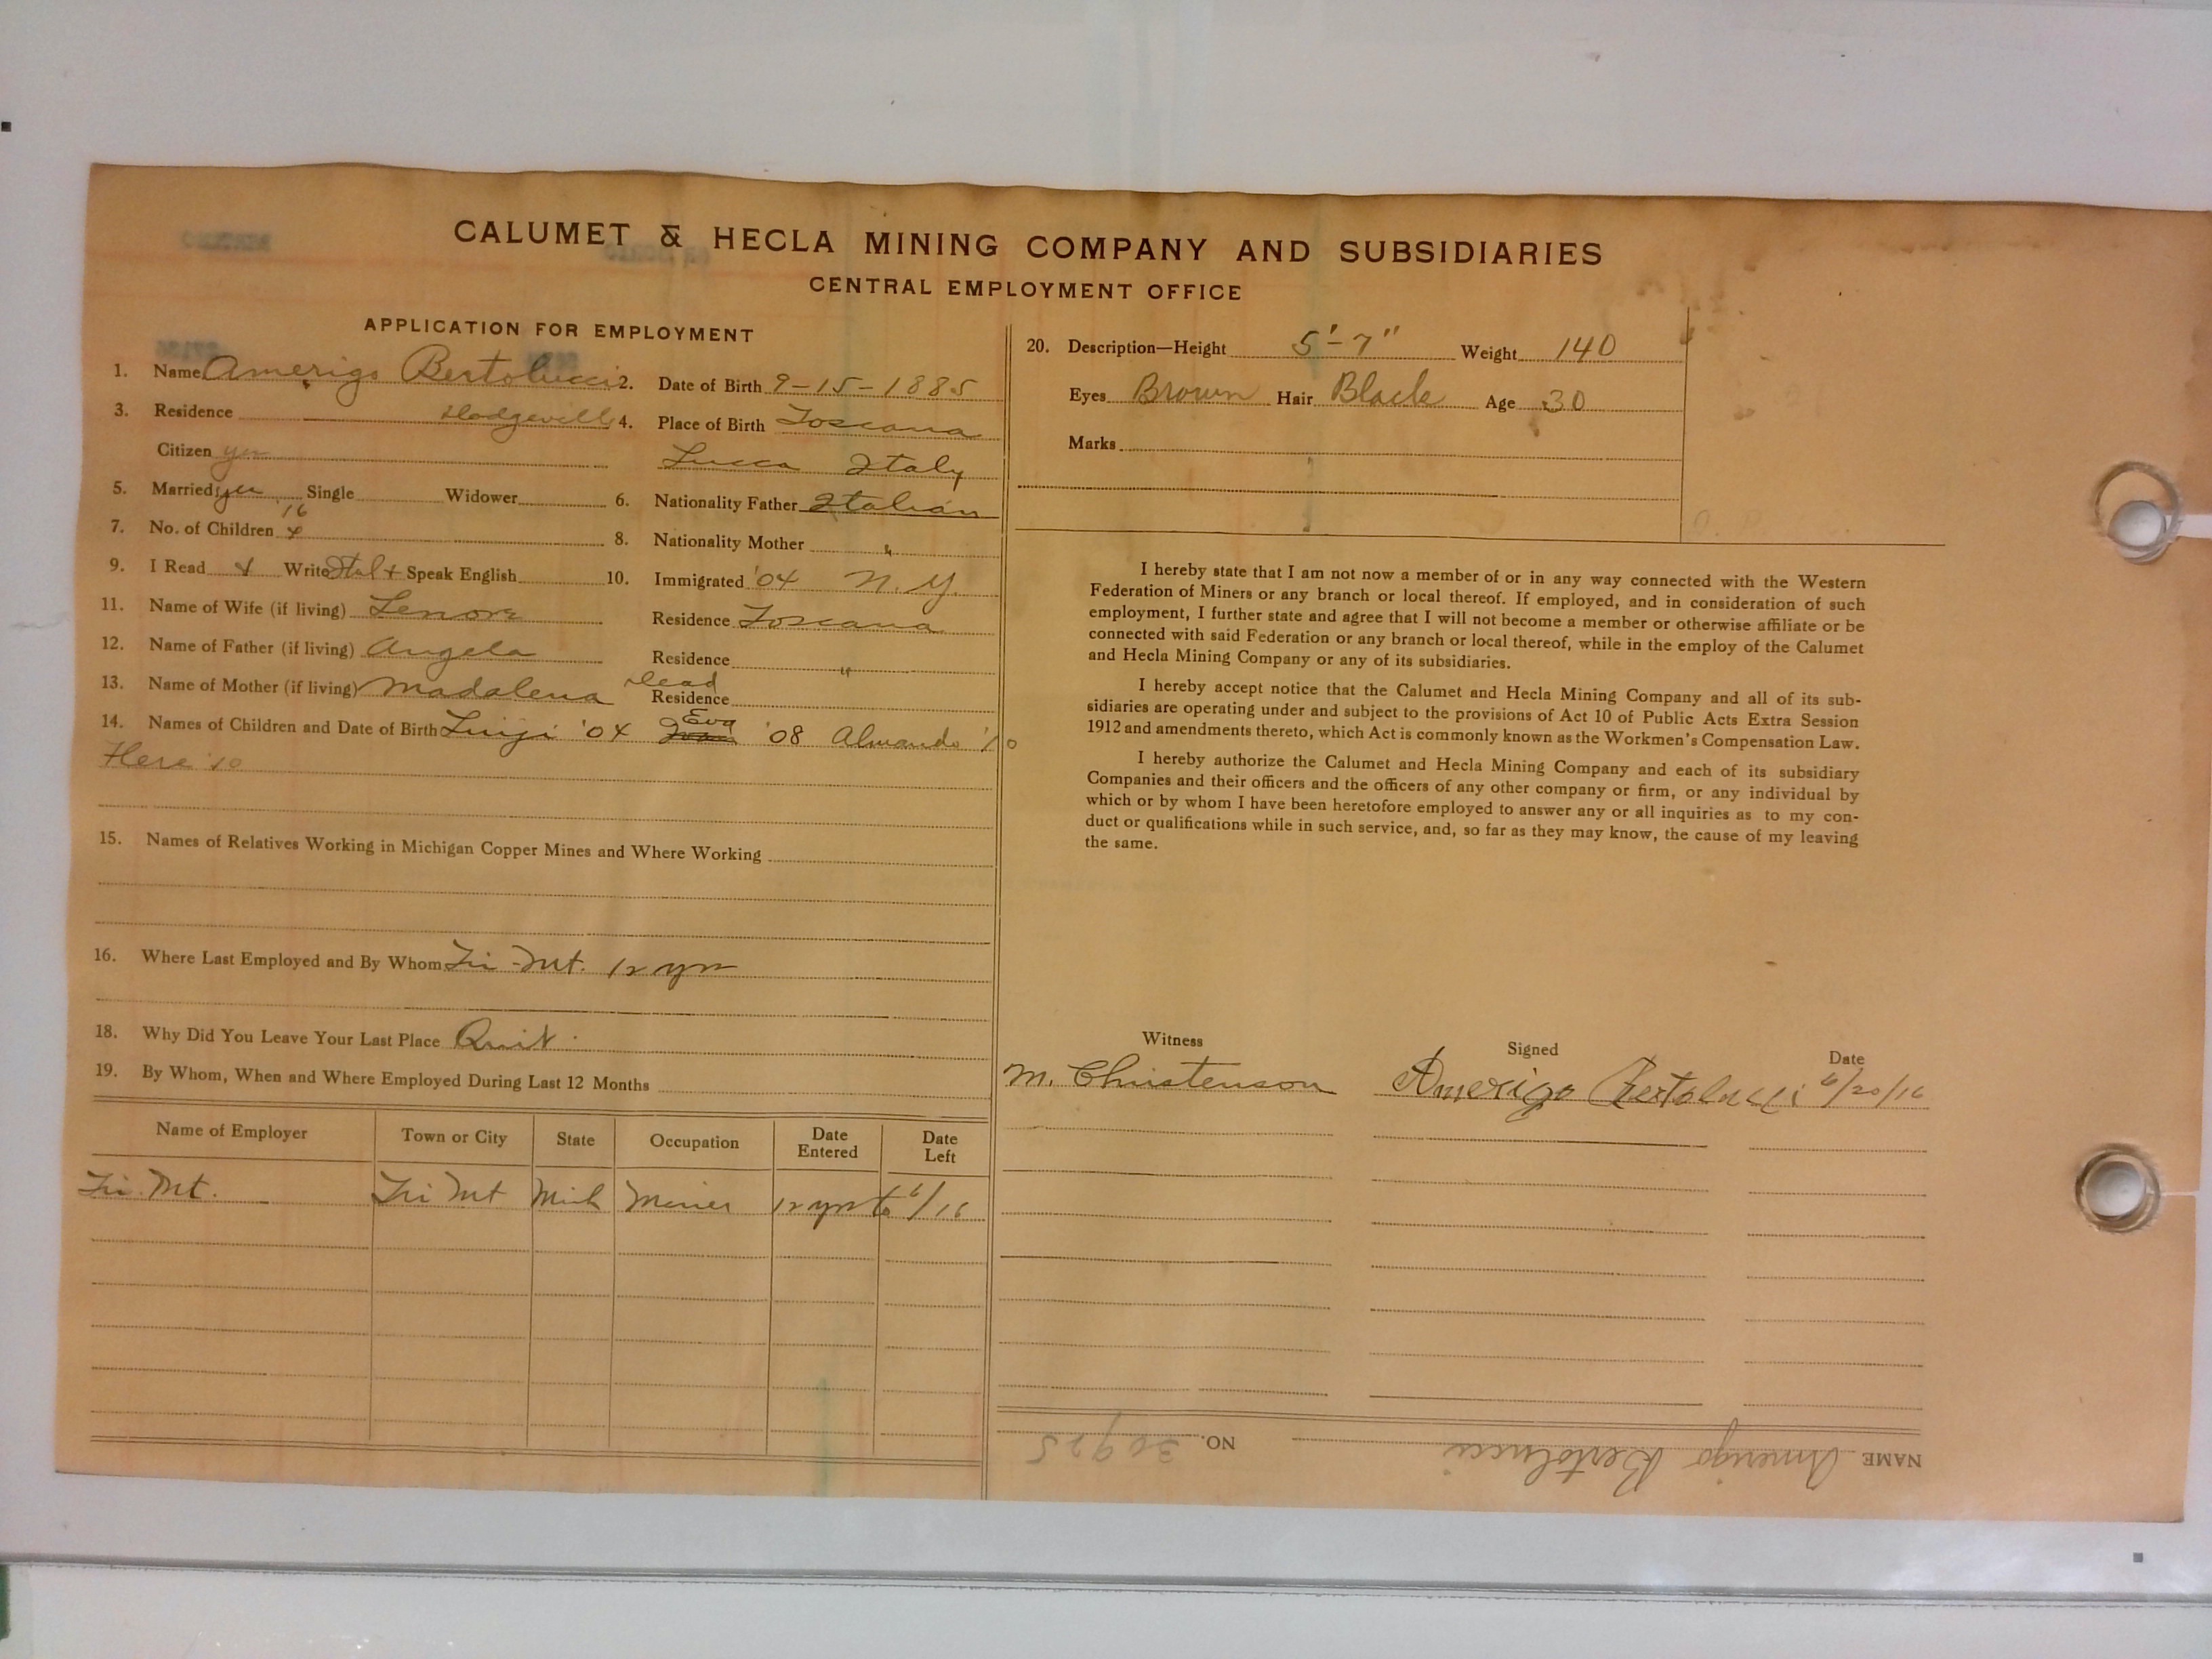 CALUMET & HECLA MINING COMPANY AND SUBSIDIARIES
CENTRAL EMPLOYMENT OFFICE
APPLICATION FOR EMPLOYMENT
1. Name Amerigo Bertolucci 2. Date of Birth 9-15-1885
3. Residence 4. Place of Birth Toscana
Citizen yes Lucca Italy
5. Married yes Single Widower 6. Nationality Father Italian
'16
7. No. of Children 4 8. Nationality Mother "
9. I Read & Write Ital + Speak English 10. Immigrated '04 N.Y.
11. Name of Wife (if living) Lenora Residence Toscana
12. Name of Father (if living) Angelo Residence "
13. Name of Mother (if living) Madalena dead Residence
14. Names of Children and Date of Birth Luigi '04 Eva '08 Almando '10
Here 10
15. Names of Relatives Working in Michigan Copper Mines and Where Working
16. Where Last Employed and By Whom Tri-Mt. 12 yrs
18. Why Did You Leave Your Last Place Quit.
19. By Whom, When and Where Employed During Last 12 Months
Name of Employer Town or City State Occupation Date Entered Date Left
Tri Mt. Tri Mt Mich Miner 12 yrs to 6/16
20. Description—Height 5'-7" Weight 140
Eyes Brown Hair Black Age 30
Marks
I hereby state that I am not now a member of or in any way connected with the Western
Federation of Miners or any branch or local thereof. If employed, and in consideration of such
employment, I further state and agree that I will not become a member or otherwise affiliate or be
connected with said Federation or any branch or local thereof, while in the employ of the Calumet
and Hecla Mining Company or any of its subsidiaries.
I hereby accept notice that the Calumet and Hecla Mining Company and all of its sub-
sidiaries are operating under and subject to the provisions of Act 10 of Public Acts Extra Session
1912 and amendments thereto, which Act is commonly known as the Workmen's Compensation Law.
I hereby authorize the Calumet and Hecla Mining Company and each of its subsidiary
Companies and their officers and the officers of any other company or firm, or any individual by
which or by whom I have been heretofore employed to answer any or all inquiries as to my con-
duct or qualifications while in such service, and, so far as they may know, the cause of my leaving
the same.
Witness Signed Date
M. Christenson Amerigo Bertolucci 6/20/16
NAME Amerigo Bertolucci NO. 30925